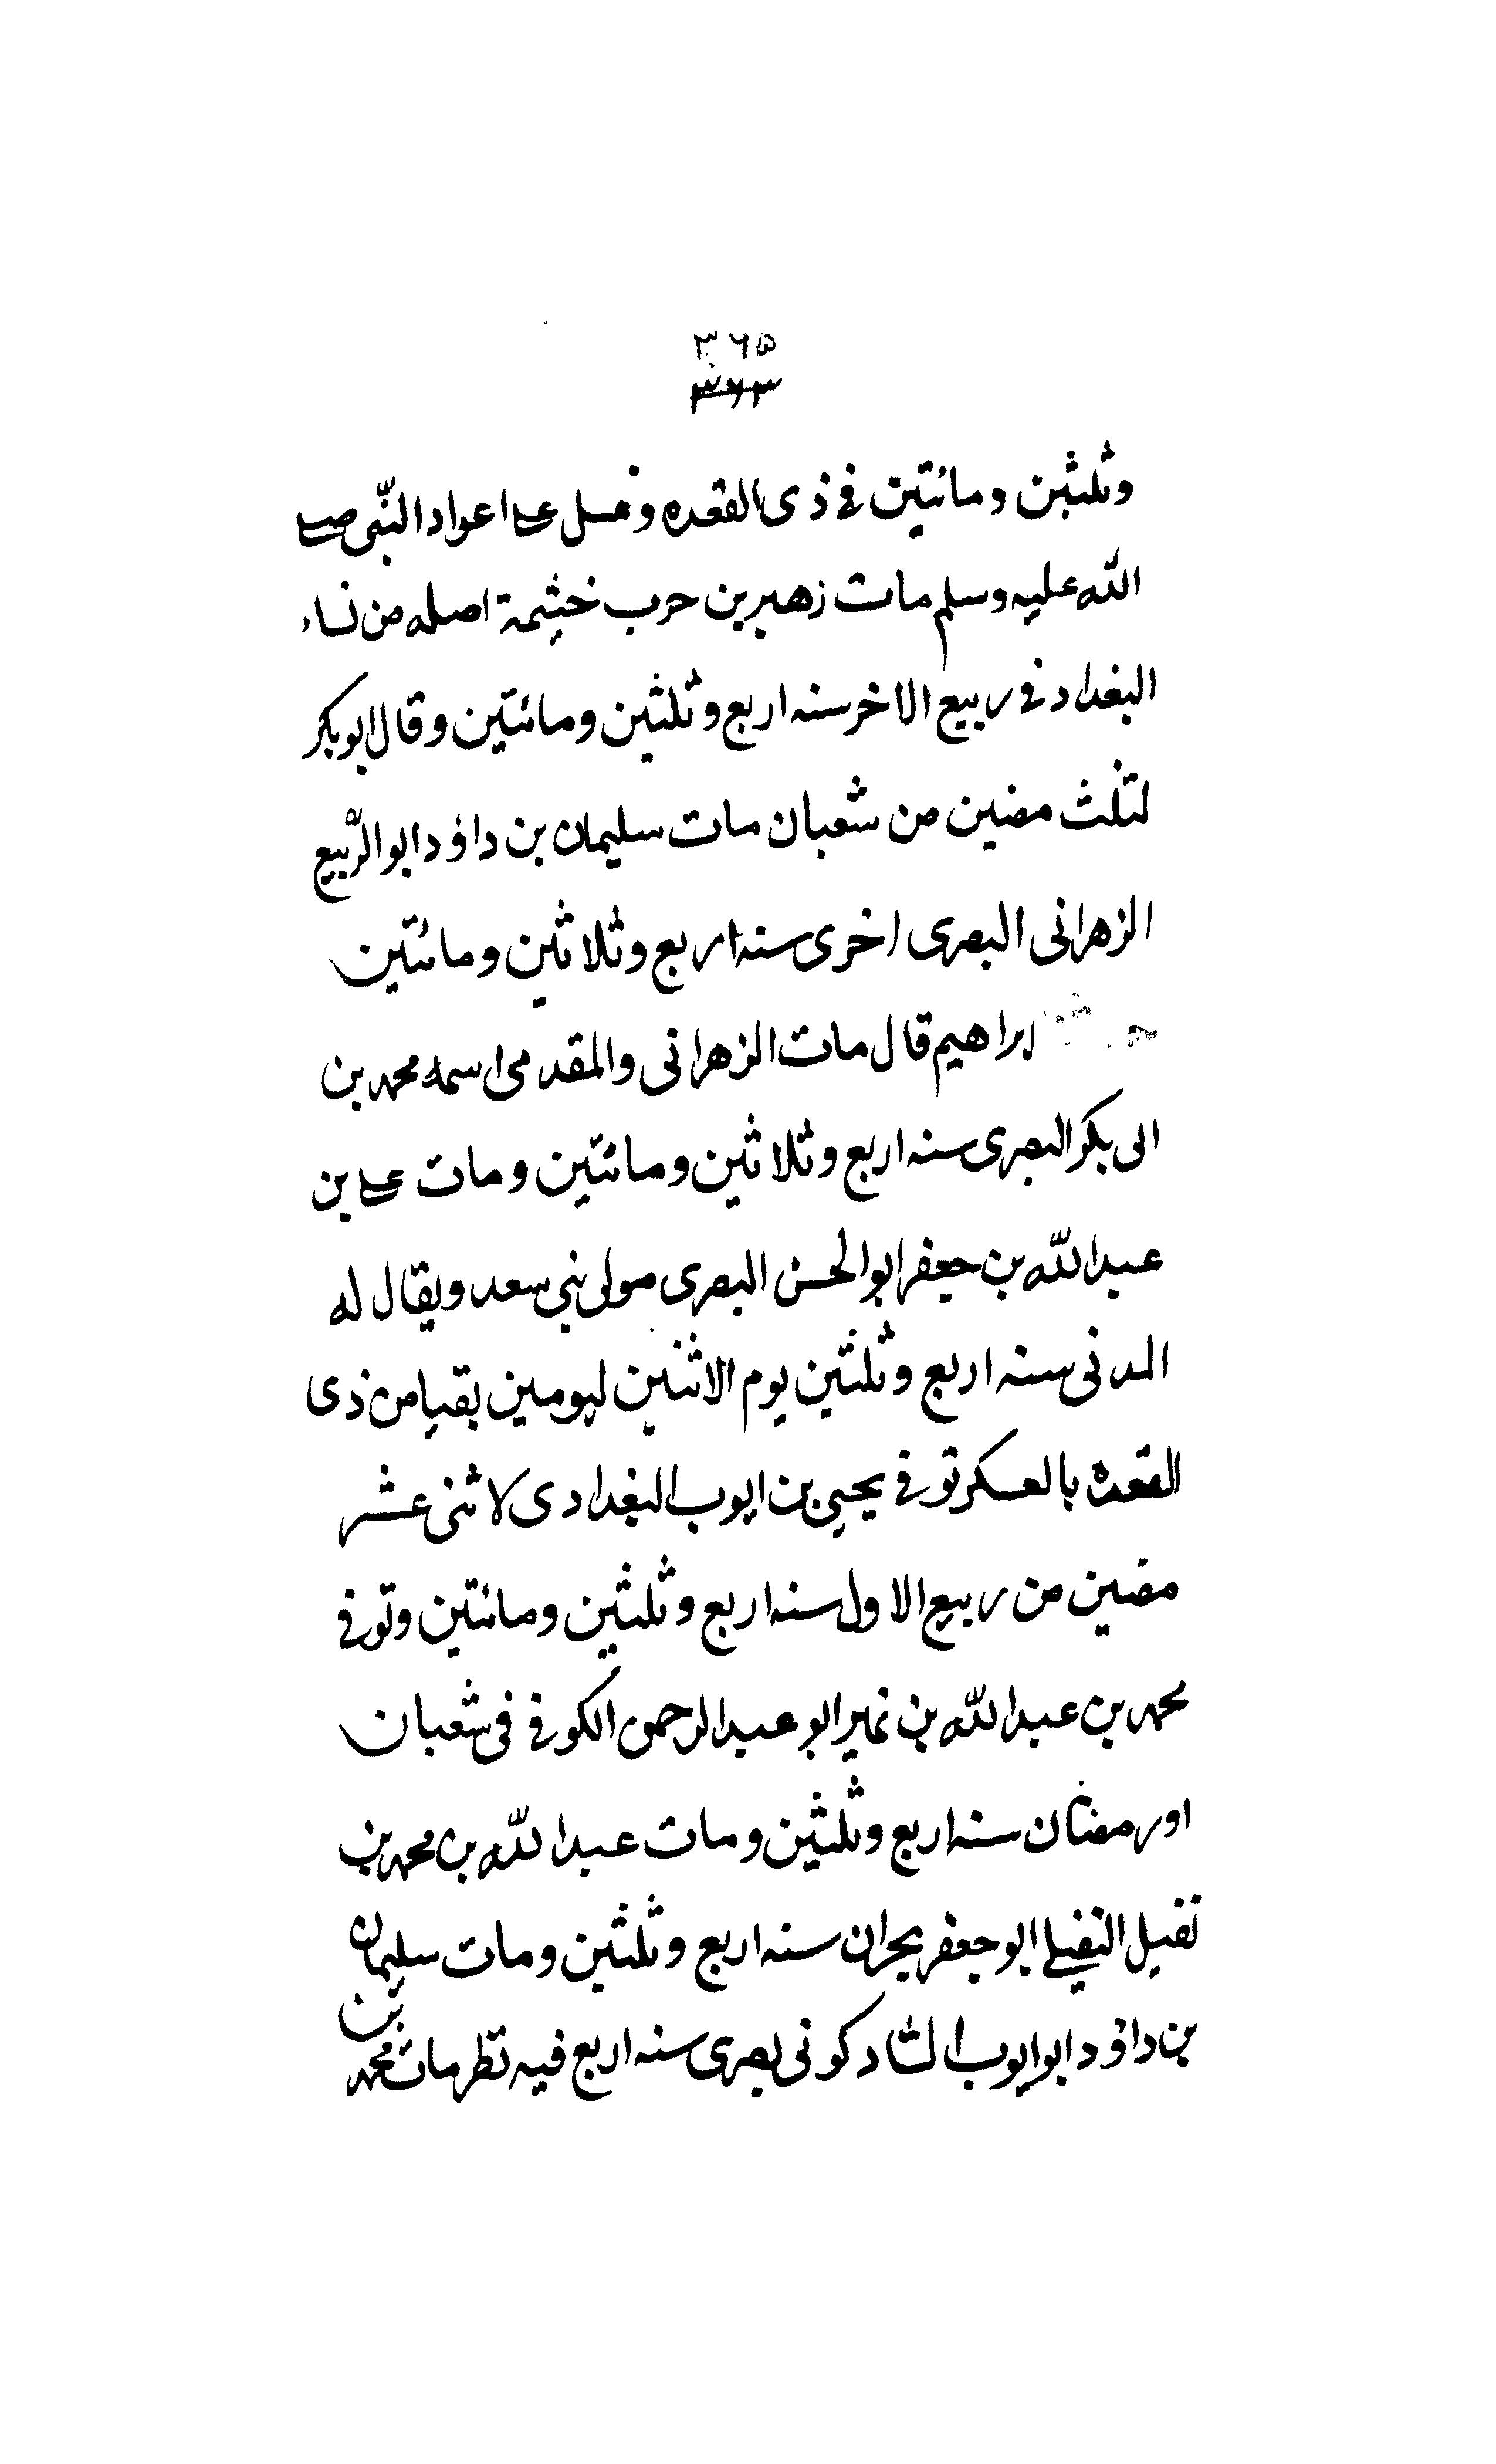 ۳۶۵
۳۶۳
وثلثين ومائتين في ذى القعده وغسل على اعواد النّبى صلى
الله عليه وسلم مات زهير بن حرب خثيمة اصله من نساء
البغداد في ربيع الاخر سنه اربع وثلثين ومائتين وقال ابو بكر
لثلث مضين من شعبان مات سليمان بن داؤد ابو الرّبيع
الزهرانى البصرى اخرى سنه اربع وثلاثين ومائتين
ابراهيم قال مات الزهرانى والمقدمى اسمه محمد بن
ابى بكر البصرى سنه اربع وثلاثين ومائتين ومات على بن
عبد الله بن جعفر ابو الحسن البصرى مولى بنى سعد ويقال له
المدنى سنه اربع وثلثين يوم الاثنين ليومين بقيا من ذى
القعده بالعسكر توفى يحيى بن ايوب البغدادى لاثنى عشر
مضين من ربيع الاول سنه اربع وثلثين ومائتين وتوفى
محمد بن عبد الله بن نمير ابو عبد الرحمن الكوفى فى شعبان
اورمضان سنه اربع وثلثين ومات عبد الله بن محمد بن
نفيل النفيلى ابو جعفر بحران سنه اربع وثلثين ومات سليمان
بن داؤد ابو ايوب الشادكونى بصرى سنه اربع فيه نظر مات محمد بن